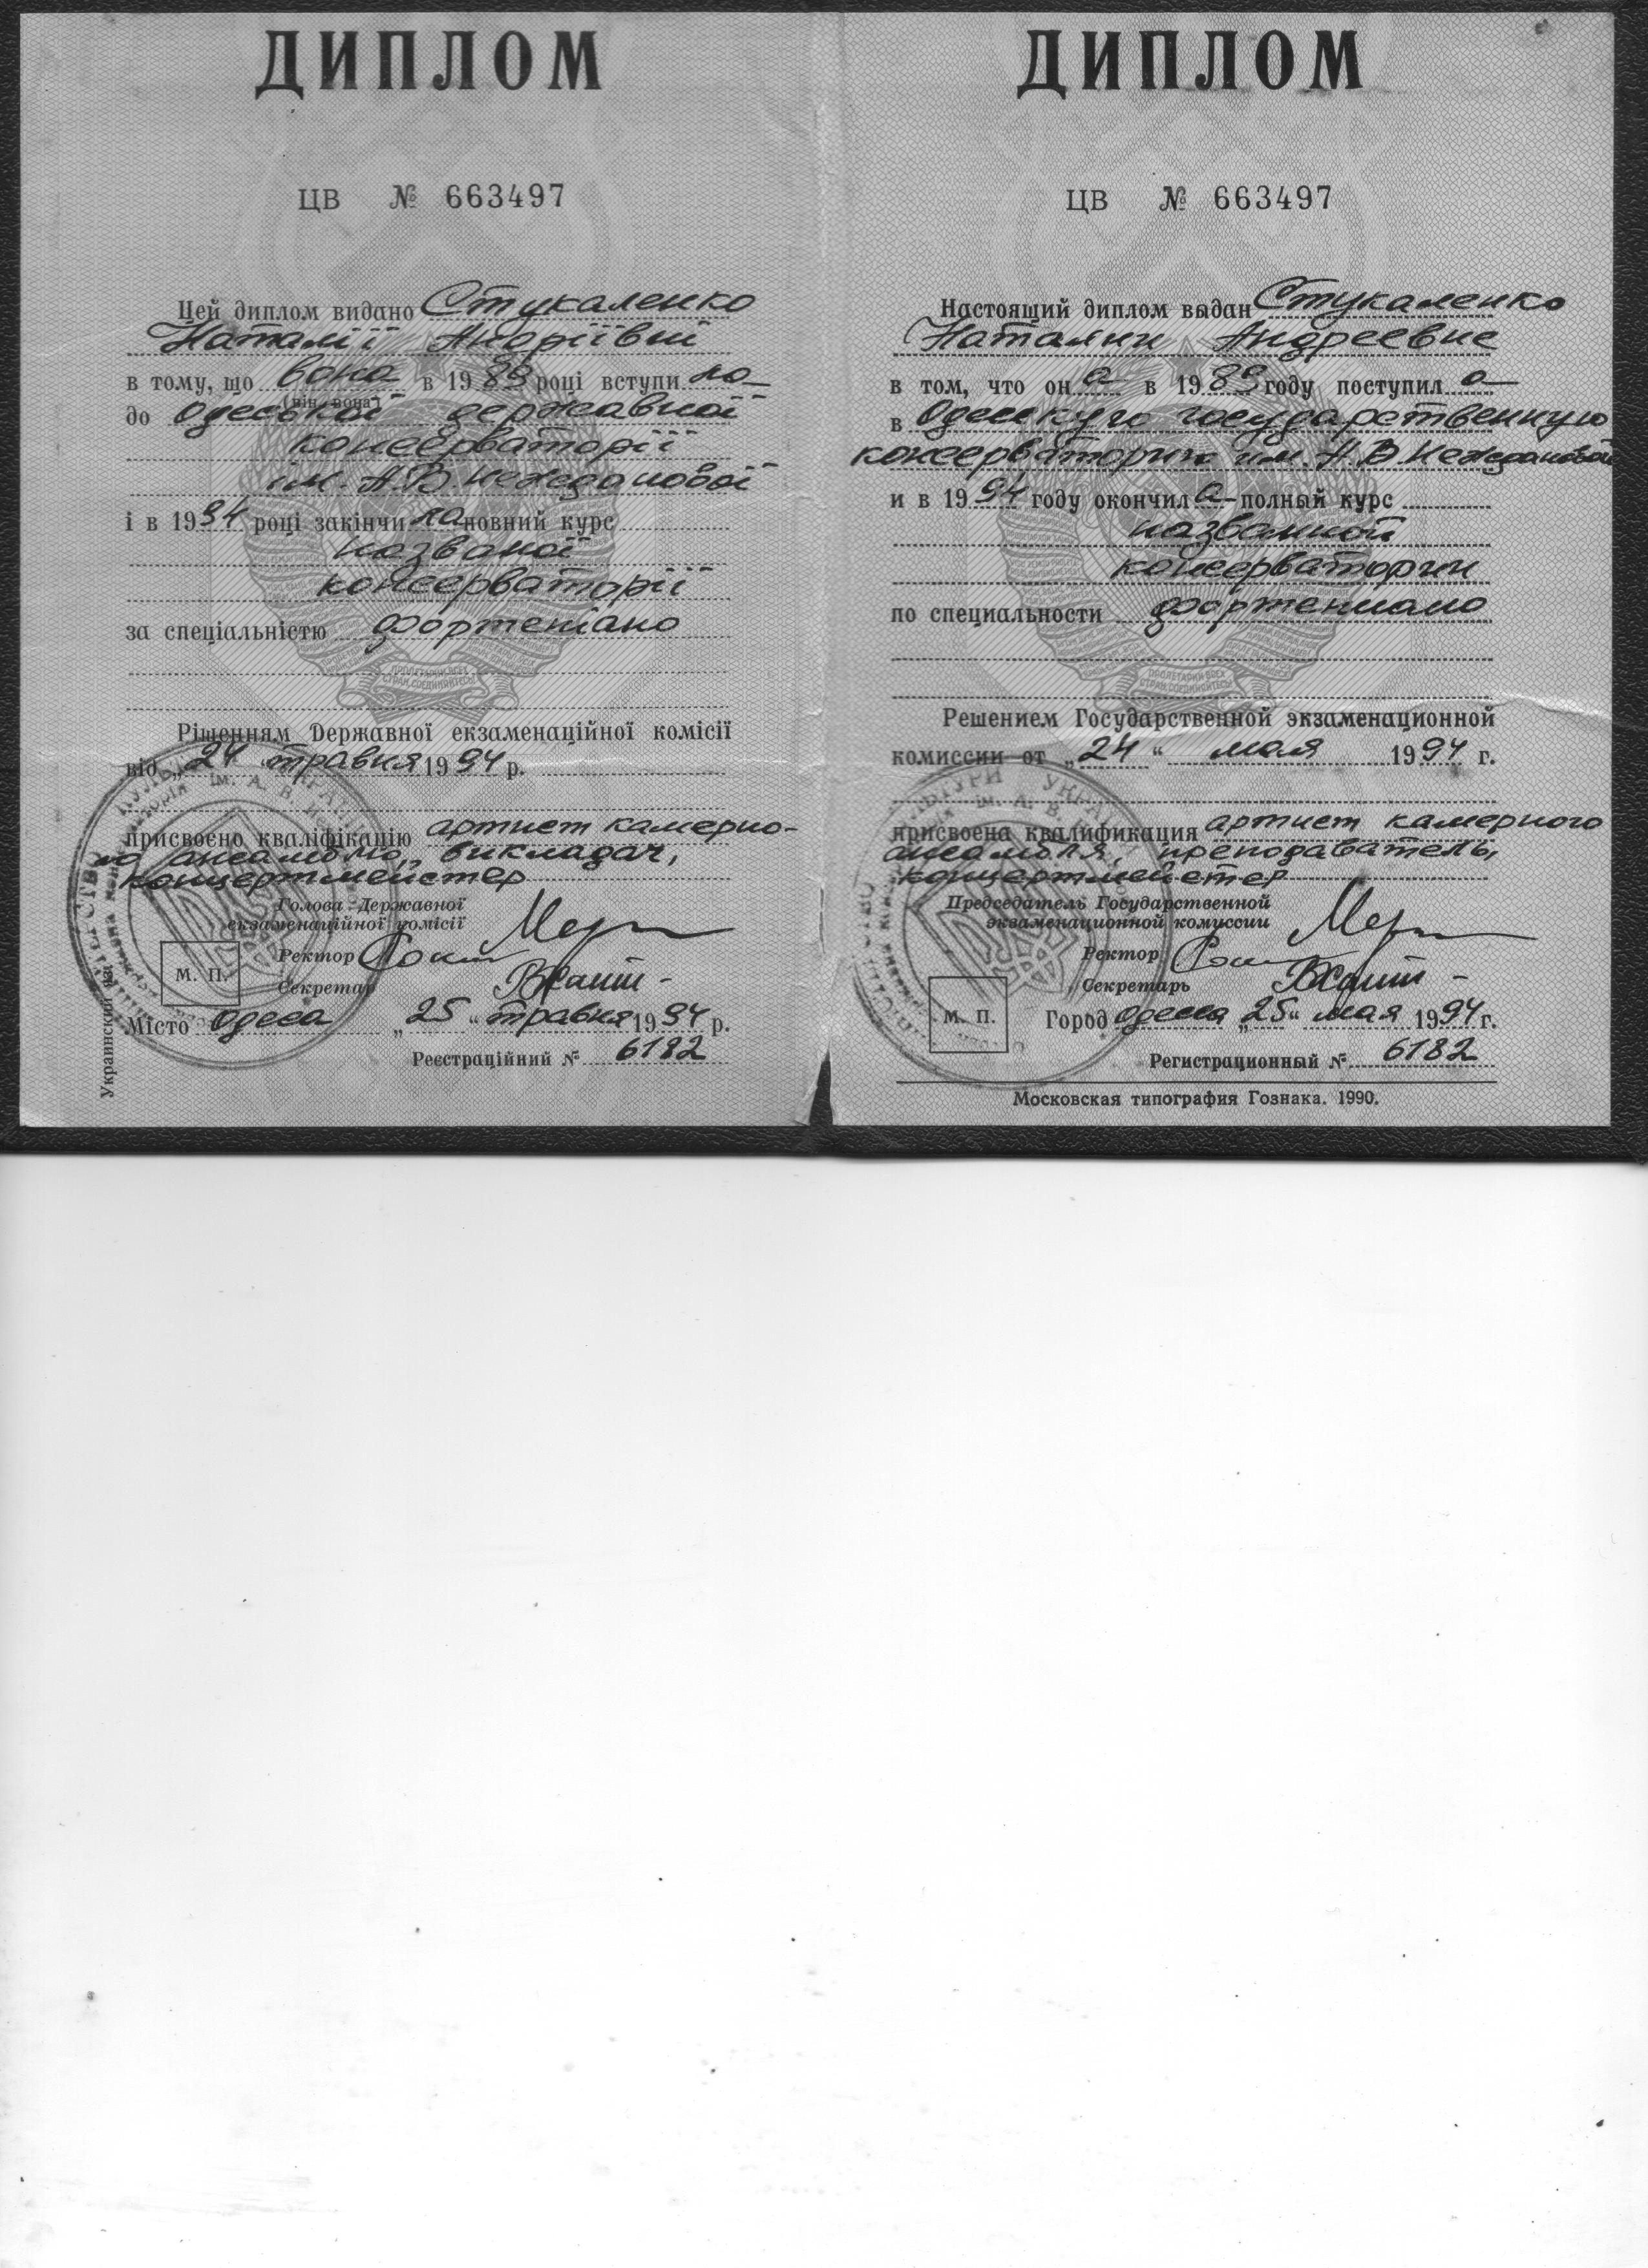 ДИПЛОМ
ЦВ № 663497
Цей диплом видано Стукаленко
Наталії Андріївні
в тому, що вона в 1989 році вступила
(він, вона)
до Одеської державної
консерваторії
ім. А.В. Нежданової
і в 1994 році закінчила повний курс
названої
консерваторії
за спеціальністю фортепіано
ПРОЛЕТАРИИ ВСЕХ
СТРАН, СОЕДИНЯЙТЕСЬ!
Рішенням Державної екзаменаційної комісії
від „24 травня 1994 р.
присвоєно кваліфікацію артист камерно-
го ансамблю, викладач,
концертмейстер
Голова Державної
екзаменаційної комісії
Ректор
Секретар
М. П.
Місто Одеса „25“ травня 1994 р.
Реєстраційний № 6182
Украинский
ДИПЛОМ
ЦВ № 663497
Настоящий диплом выдан Стукаленко
Наталии Андреевне
в том, что она в 1989 году поступила
в Одесскую государственную
консерваторию им. А.В. Неждановой
и в 1994 году окончила полный курс
названной
консерватории
по специальности фортепиано
ПРОЛЕТАРИИ ВСЕХ
СТРАН, СОЕДИНЯЙТЕСЬ!
Решением Государственной экзаменационной
комиссии от „24“ мая 1994 г.
присвоена квалификация артист камерного
ансамбля, преподаватель,
концертмейстер
Председатель Государственной
экзаменационной комиссии
Ректор
Секретарь
М. П.
Город Одесса „25“ мая 1994 г.
Регистрационный № 6182
Московская типография Гознака. 1990.